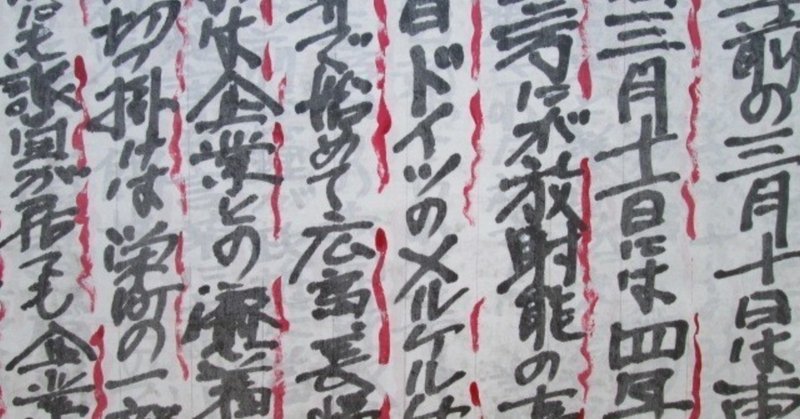 前の三月十日は東
三月十一日には四年
放射能の
日ドイツのメルケル
で始めて広島長崎
は企業との癒着
切掛けは栄町の一部
議員が居ても企業